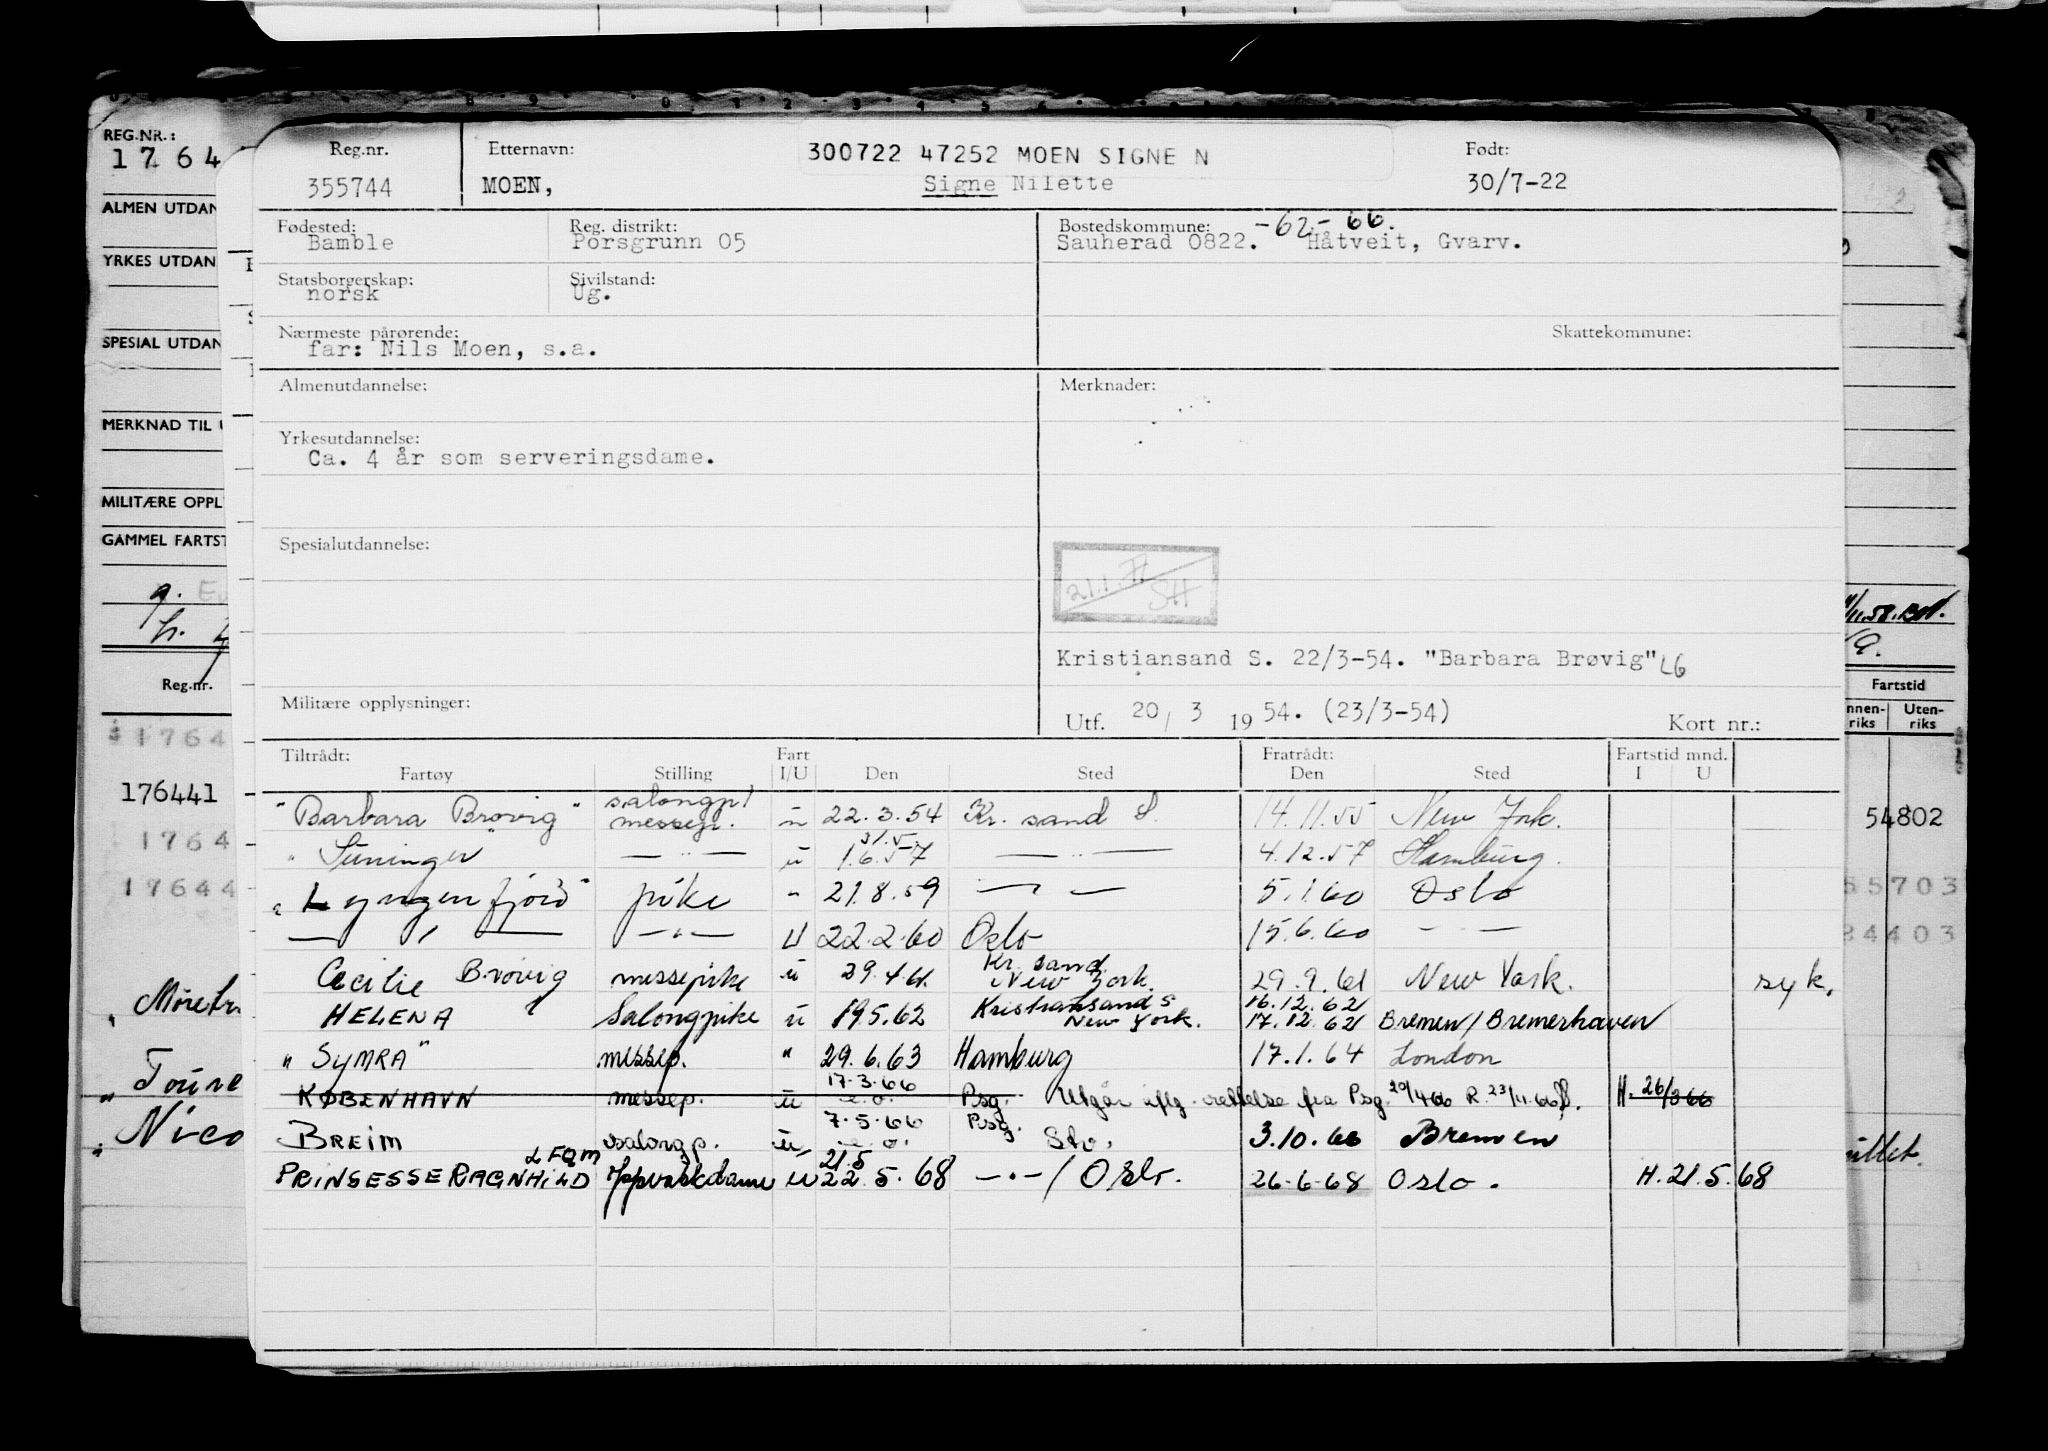 REG.NR.:
1 7 6 4
ALMEN UTDAN
YRKES UTDAN
SPESIAL UTDAN
MERKNAD TIL U
MILITÆRE OPPL
GAMMEL FARTST
Reg.nr.
1 7 6 4
176441
1 7 6 4
1 7 6 4 4
Møretr
Toure
Nico
Reg.nr. Etternavn: 300722 47252 MOEN SIGNE N Født:
355744 MOEN, Signe Nilette 30/7-22
Fødested: Reg. distrikt: Bostedskommune: -62-66.
Bamble Porsgrunn 05 Sauherad 0822. Håtveit, Gvarv.
Statsborgerskap: Sivilstand:
norsk Ug.
Nærmeste pårørende: Skattekommune:
far: Nils Moen, s.a.
Almenutdannelse: Merknader:
Yrkesutdannelse:
Ca. 4 år som serveringsdame.
Spesialutdannelse:
21.1.71 SH
Kristiansand S. 22/3-54. "Barbara Brøvig" LG
Militære opplysninger:
Utf. 20/ 3 1954. (23/3-54) Kort nr.:
Tiltrådt: Fart Fratrådt: Fartstid mnd.
Fartøy Stilling I/U Den Sted Den Sted I U
salongp/
"Barbara Brøvig" messep. u 22.3.54 Kr. sand S. 14.11.55 New York.
31.5
" — " — u 1.6.57 — " — 4.12.57 Hamburg.
"Lyngenfjord" pike " 21.8.59 — " — 5.1.60 Oslo
— " — — " — U 22.2.60 Oslo 15.6.60 — " —
Kr. sand
Cecilie Brøvig messepike u 29.4.61. New York. 29.9.61 New York. syk.
Kristiansand S 16.12.62
HELENA Salongpike u 19.5.62 New York. 17.12.62 Bremen/Bremerhaven
"SYMRA" messep. " 29.6.63 Hamburg 17.1.64 London
17.3.66
KØBENHAVN messep. u e.o. Psg. Utgår iflg. rettelse fra Psg 20/4 66 R. 23/11.66 H. 26/3 66
7.5.66 Psg.
BREIM salongp. u e.o. Sto. 3.10.66 Bremen
LFQM 21.5
PRINSESSE RAGNHILD Oppvaskdame U 22.5.68 —"—/Oslo. 26.6.68 Oslo. H. 21.5.68
Fartstid
nnen-riks Uten-riks
54802
5 5 7 0 3
8 4 4 0 3